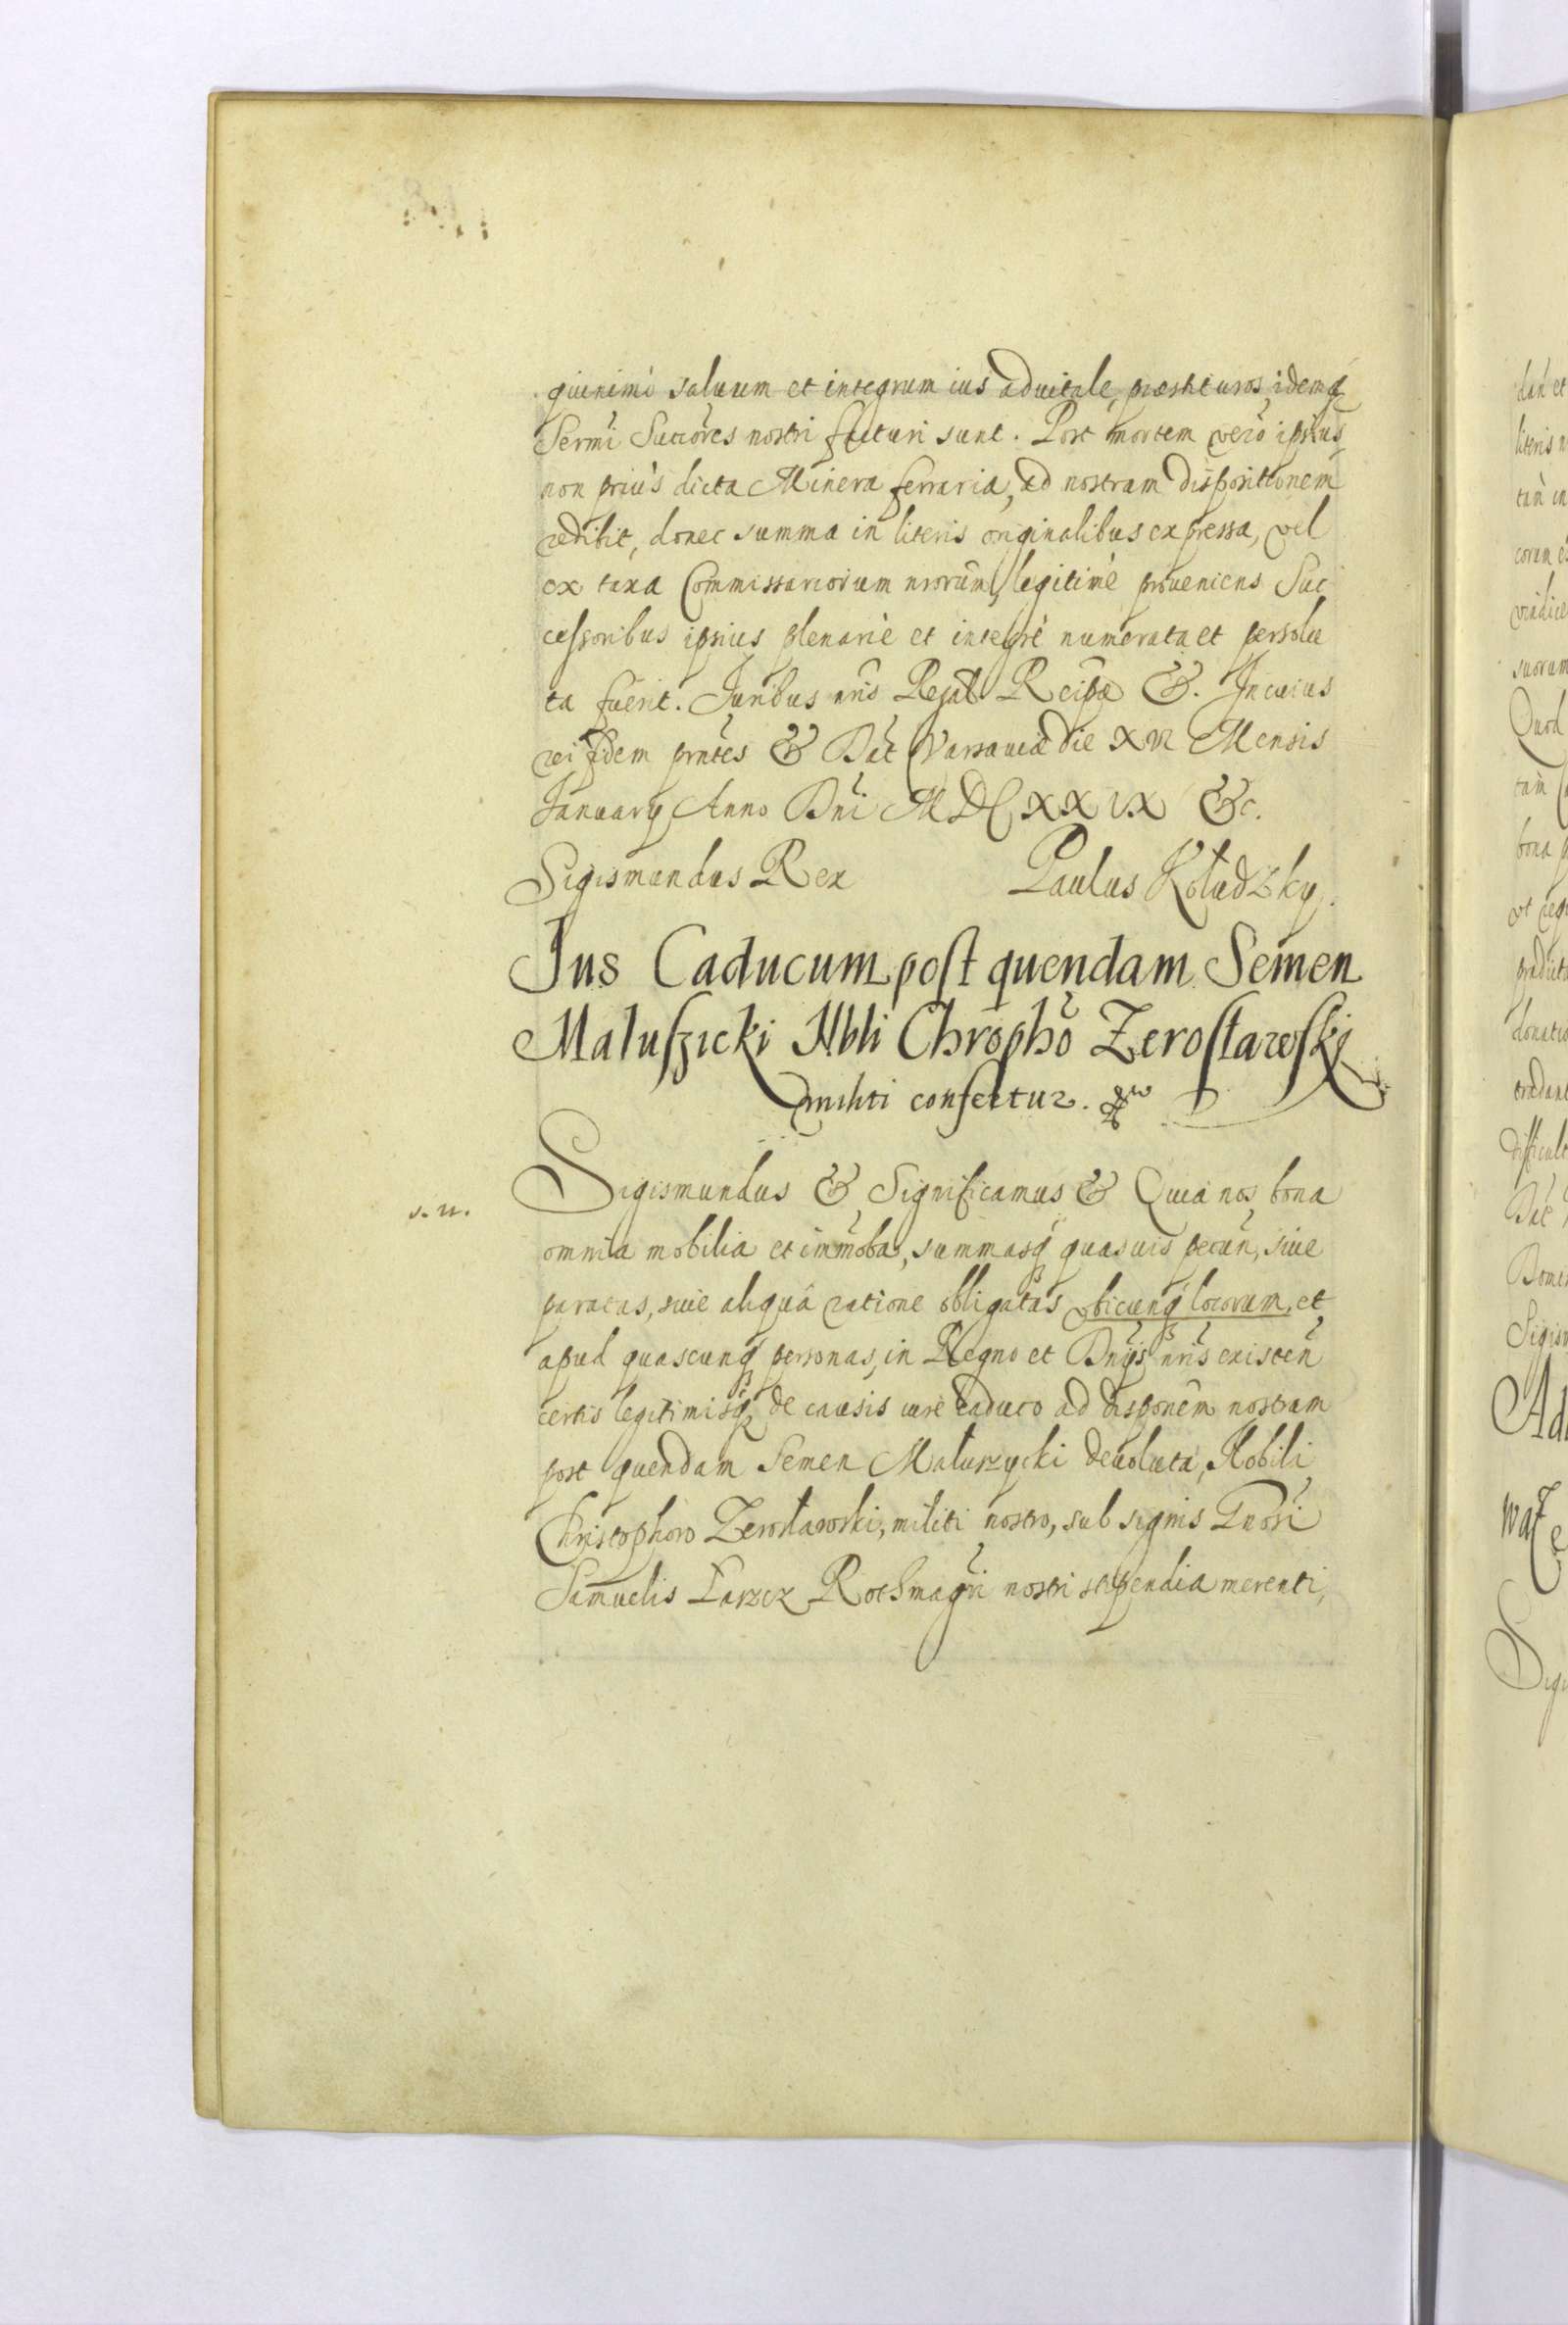 quinimo saluum et integrum ius aduitale, præstituros, idemq
Sermi Succores nostri facturi sunt. Post mortem verò ipsius
non priùs dicta Minera ferraria, ad nostram dispositionem
redibit, donec summa in literis originalibus expressa, vel
ex taxa Commissariorum nrorum, legitimè proueniens Suc
cessoribus ipsius plenariè et integrè numerata et persolu
ta fuerit. Juribus nris Regal. Reipæ &. In cuius
rei fidem pntes & Dat Varsauiæ die XVI Mensis
January Anno Dni MDCXXIX &c.
Sigismundus Rex Paulus Kołudzky.
Jus Caducum post quendam Semen
Maluszicki Nbli Chropho Zerosławski
militi confertur.
s. n.
Sigismundus & Significamus & Quia nos bona
omnia mobilia et immoba, summasq quasuis pecun, siue
paratas, siue aliquâ ratione obligatas vbicunq locorum, et
apud quascunq personas, in Regno et Dnijs nris existen
certis legitimisq de causis iure caduco ad disponem nostram
post quendam Semen Małuszycki deuoluta, Nobili
Christophoro Zerosławski, militi nostro, sub signis Gnosi
Samuelis Łarzcz Rothmagri nostri stipendia merenti,
dan et
literis n
tan in
corum
suorum
Quod
tan
bona
vt
donatio
difficult
Dat
Sigis
Ad